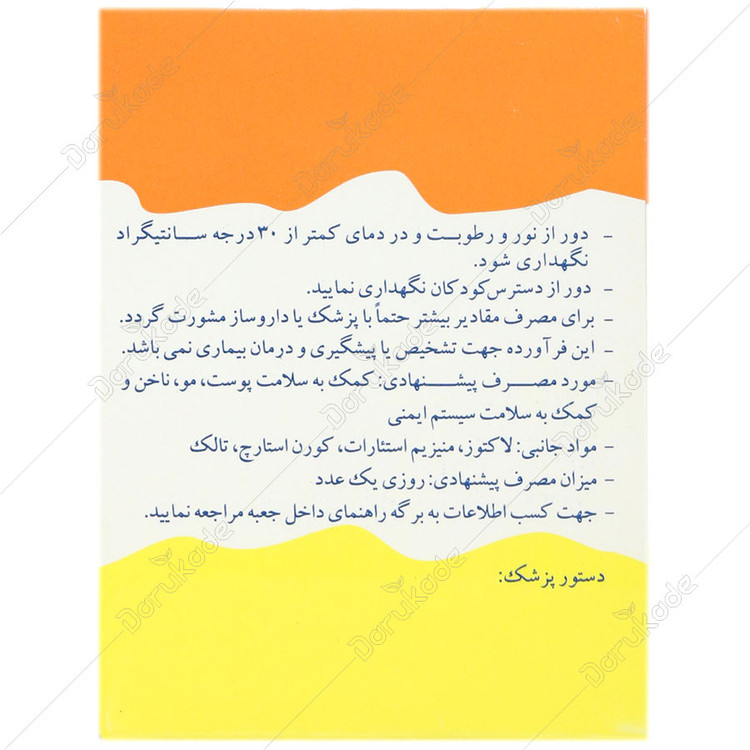 - دور از نور و رطوبت و در دمای کمتر از ۳۰ درجه سانتیگراد
نگهداری شود.
- دور از دسترس کودکان نگهداری نمایید.
- برای مصرف مقادیر بیشتر حتماً با پزشک یا داروساز مشورت گردد.
- این فرآورده جهت تشخیص یا پیشگیری و درمان بیماری نمی باشد.
- مورد مصرف پیشنهادی: کمک به سلامت پوست، مو، ناخن و
کمک به سلامت سیستم ایمنی
- مواد جانبی: لاکتوز، منیزیم استئارات، کورن استارچ، تالک
- میزان مصرف پیشنهادی: روزی یک عدد
- جهت کسب اطلاعات به برگه راهنمای داخل جعبه مراجعه نمایید.
دستور پزشک:
Darukade